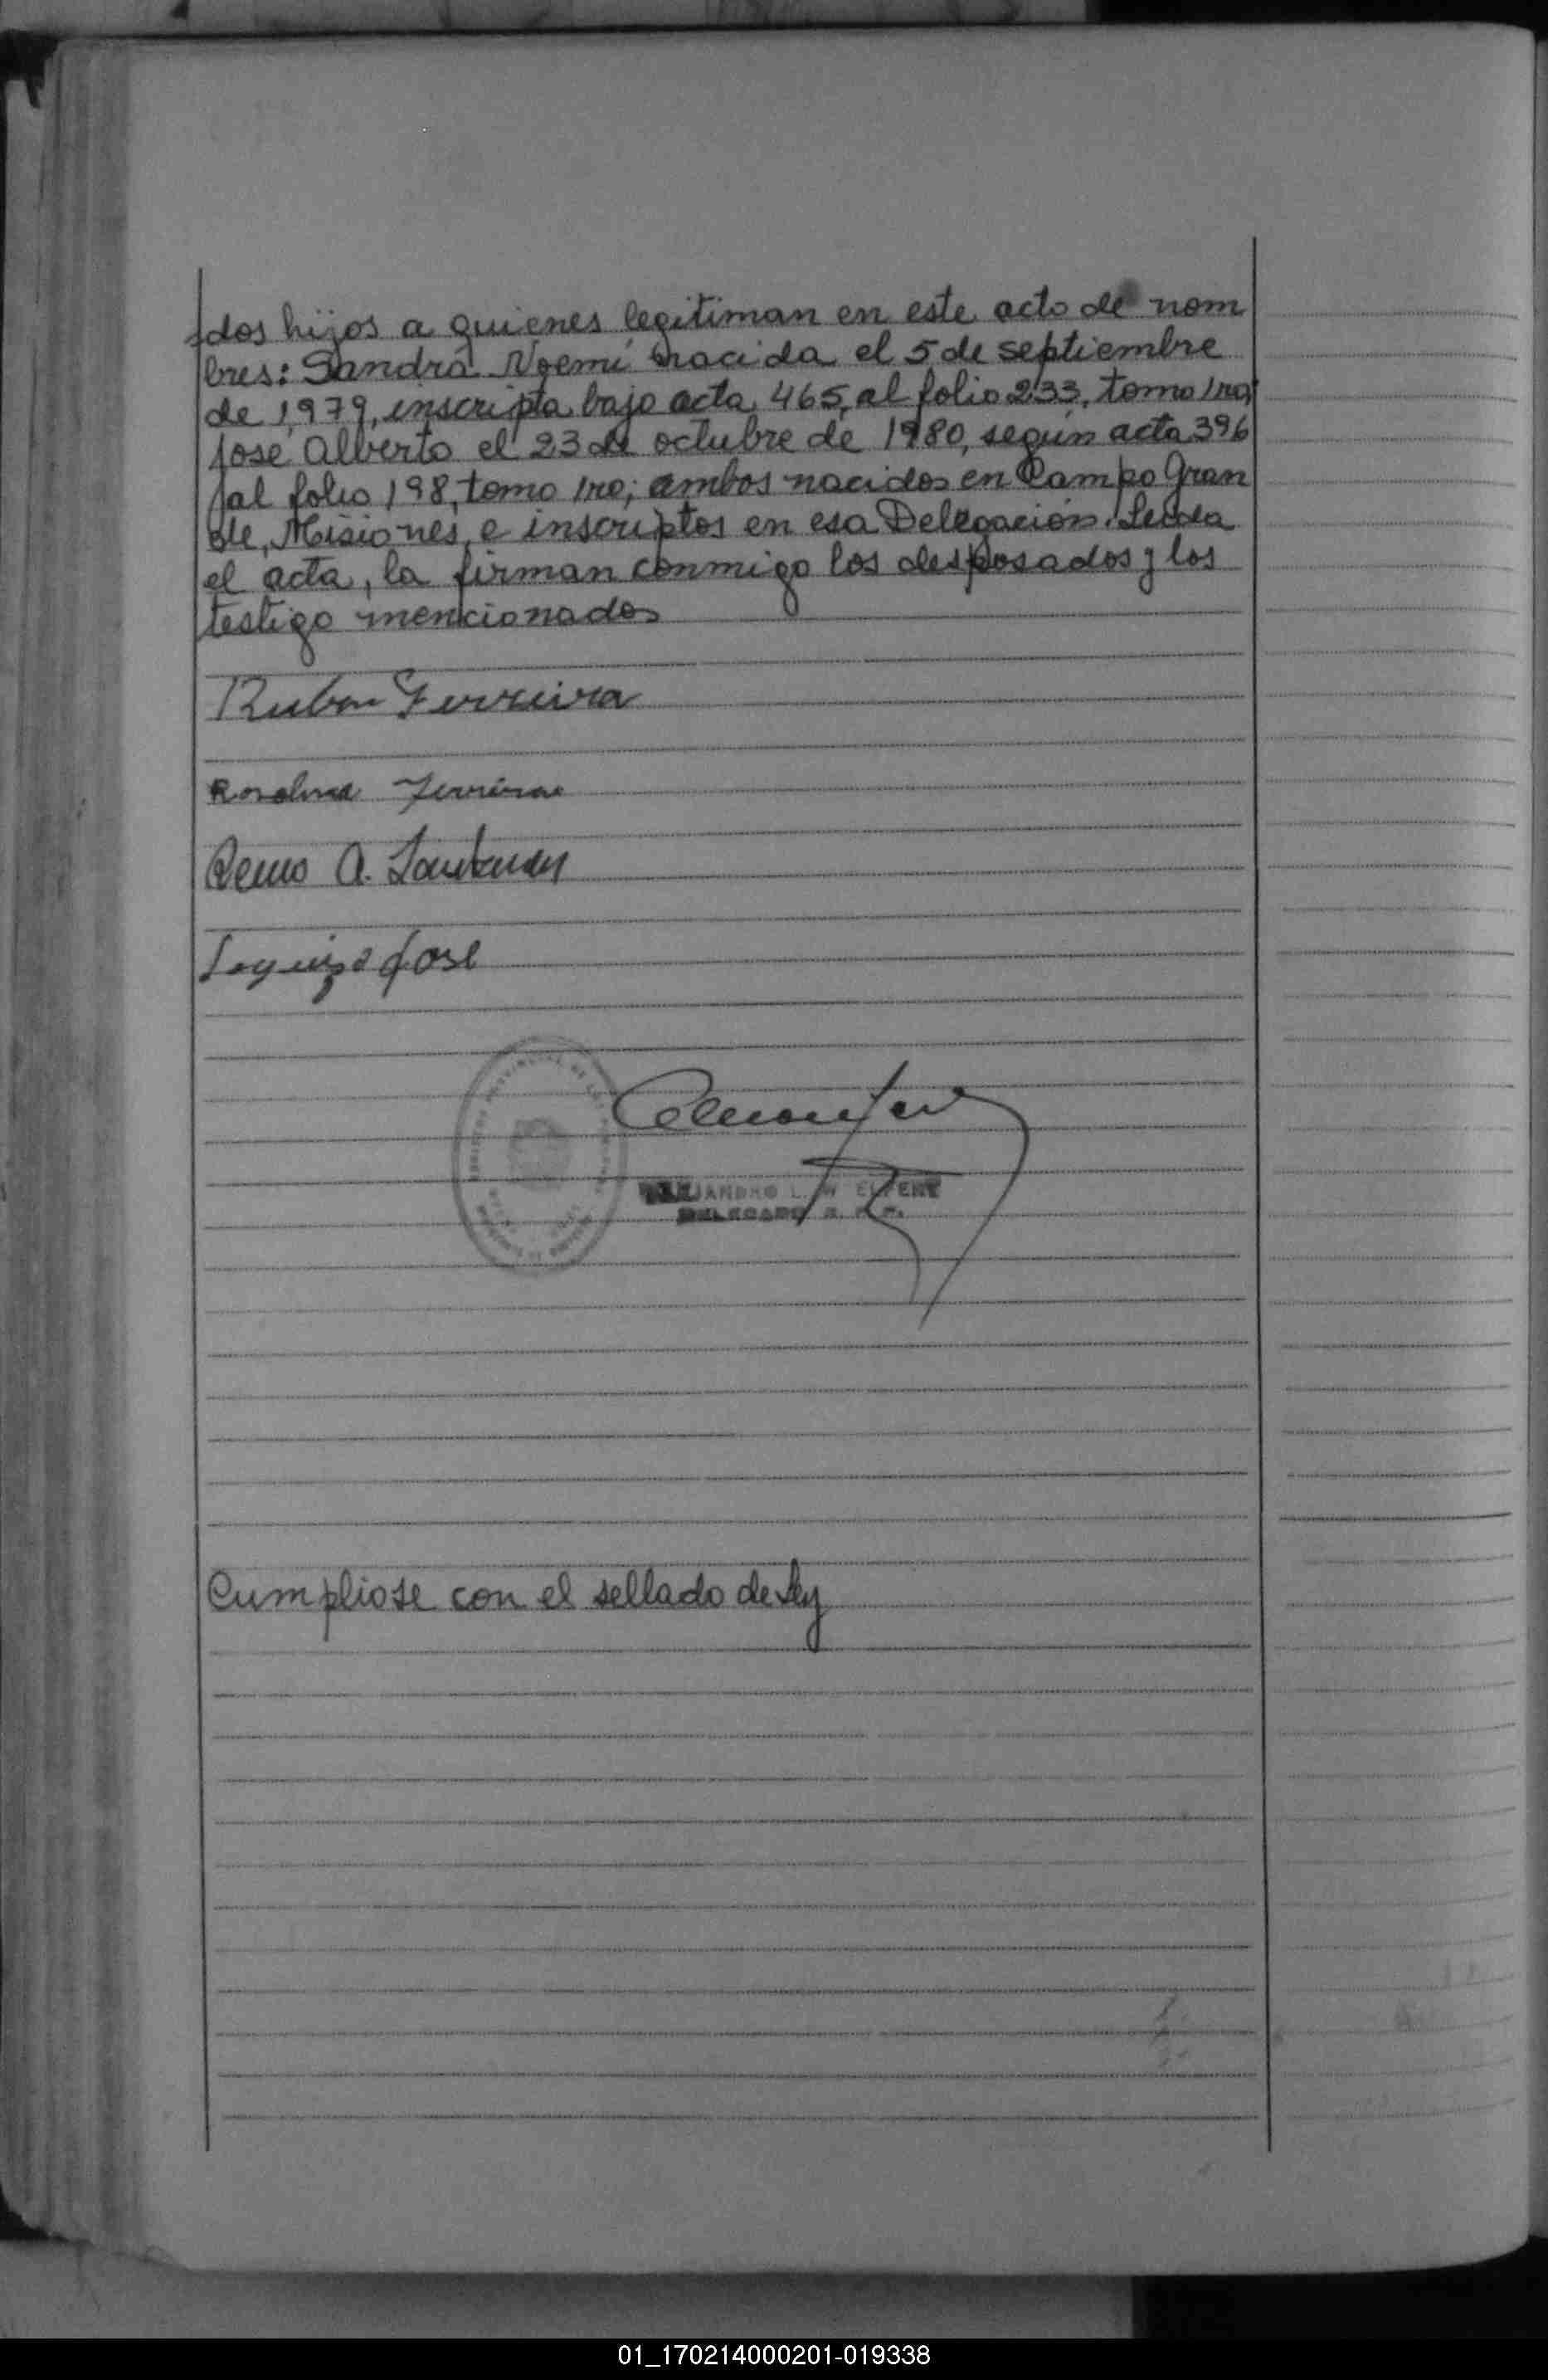 dos hijos a quienes legitiman en este acto de nom
bres: Sandra Noemí nacida el 5 de septiembre
de 1979, inscripta bajo acta 465, al folio 233, tomo 1ro;
José Alberto el 23 de octubre de 1980, según acta 396
al folio 198, tomo 1ro; ambos nacidos en Campo Gran
de, Misiones, e inscriptos en esa Delegación. Leida
el acta, la firman conmigo los desposados y los
testigo mencionados
Ruben Ferreira
Rosalina Ferreira
Remo A.
José
DELEGADO
Cumpliose con el sellado de ley
01_170214000201-019338